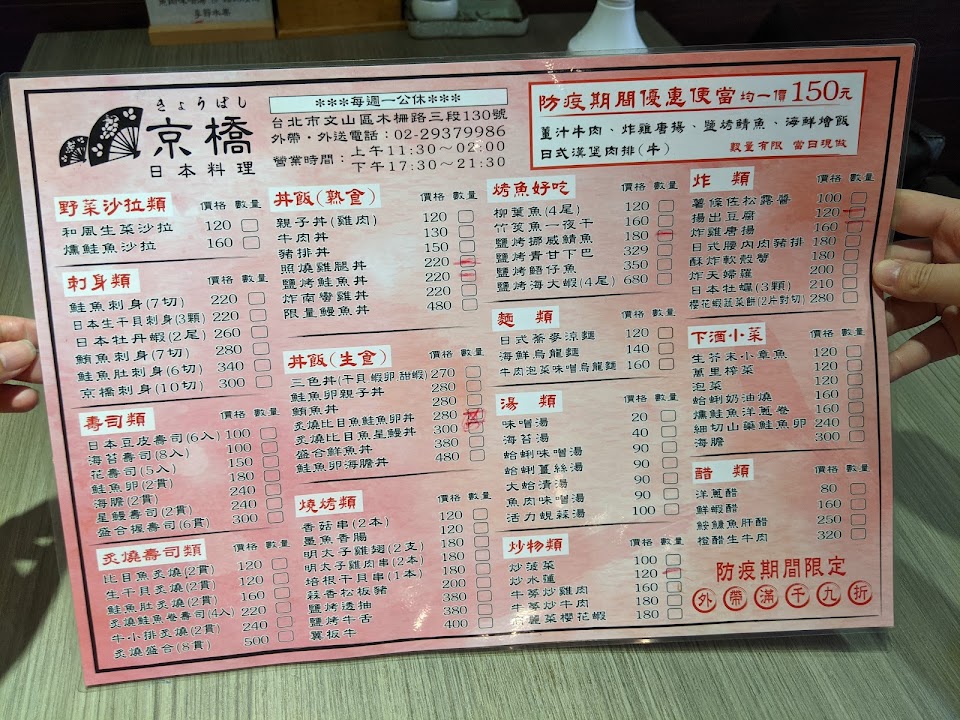 きょうばし
京橋
日本料理
***每週一公休***
台北市文山區木柵路三段130號
外帶·外送電話：02-29379986
營業時間：上午11:30~02:00
下午17:30~21:30
防疫期間優惠便當 均一價150元
薑汁牛肉、炸雞唐揚、鹽烤鯖魚、海鮮燴飯
日式漢堡肉排(牛) 數量有限 當日現做
野菜沙拉類 價格 數量
和風生菜沙拉 120
燻鮭魚沙拉 160
刺身類 價格 數量
鮭魚刺身(7切) 220
日本生干貝刺身(3顆) 220
日本牡丹蝦(2尾) 260
鮪魚刺身(7切) 280
鮭魚肚刺身(6切) 340
京橋刺身(10切) 300
壽司類 價格 數量
日本豆皮壽司(6入) 100
海苔壽司(8入) 100
花壽司(5入) 150
鮭魚卵(2貫) 180
海膽(2貫) 240
星鰻壽司(2貫) 240
盛合握壽司(6貫) 300
炙燒壽司類 價格 數量
比目魚炙燒(2貫) 120
生干貝炙燒(2貫) 120
鮭魚肚炙燒(2貫) 160
炙燒鮭魚卷壽司(4入) 220
牛小排炙燒(2貫) 240
炙燒盛合(8貫) 500
丼飯(熟食) 價格 數量
親子丼(雞肉) 120
牛肉丼 130
豬排丼 150
照燒雞腿丼 220
鹽烤鮭魚丼 220
炸南蠻雞丼 220
限量鰻魚丼 480
丼飯(生食) 價格 數量
三色丼(干貝 蝦卵 甜蝦) 270
鮭魚卵親子丼 280
鮪魚丼 280
炙燒比目魚鮭魚卵丼 280
炙燒比目魚星鰻丼 300
盛合鮮魚丼 380
鮭魚卵海膽丼 480
燒烤類 價格 數量
香菇串(2本) 120
墨魚香腸 120
明太子雞翅(2支) 180
明太子雞肉串(2本) 180
培根干貝串(1本) 180
蒜香松板豬 200
鹽烤透抽 380
鹽烤牛舌 380
翼板牛 400
烤魚好吃 價格 數量
柳葉魚(4尾) 120
竹筴魚一夜干 160
鹽烤挪威鯖魚 180
鹽烤青甘下巴 329
鹽烤皓仔魚 350
鹽烤海大蝦(4尾) 680
麵類 價格 數量
日式蕎麥涼麵 120
海鮮烏龍麵 140
牛肉泡菜味噌烏龍麵 160
湯類 價格 數量
味噌湯 20
海苔湯 40
蛤蜊味噌湯 90
蛤蜊薑絲湯 90
大蛤清湯 90
魚肉味噌湯 90
活力蜆菇湯 100
炒物類 價格 數量
炒菠菜 100
炒水蓮 120
牛蒡炒雞肉 160
牛蒡炒牛肉 180
高麗菜櫻花蝦 180
炸類 價格 數量
薯條佐松露醬 100
揚出豆腐 120
炸雞唐揚 160
日式腰內肉豬排 180
酥炸軟殼蟹 180
炸天婦羅 200
日本牡蠣(3顆) 210
櫻花蝦蔬菜餅(2片對切) 280
下酒小菜 價格 數量
生芥末小章魚 120
萬里榨菜 120
泡菜 120
蛤蜊奶油燒 160
燻鮭魚洋蔥卷 160
細切山藥鮭魚卵 240
海膽 300
醋類 價格 數量
洋蔥醋 80
鮮蝦醋 160
鮟鱇魚肝醋 250
橙醋生牛肉 320
防疫期間限定
外帶滿千九折